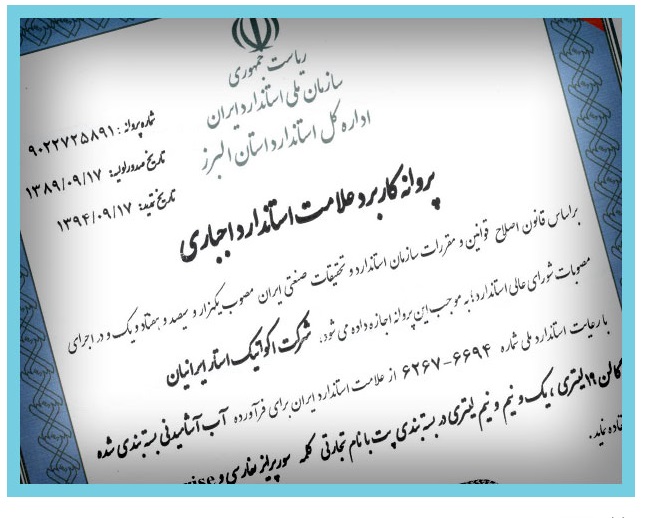 ریاست جمهوری
سازمان ملی استاندارد ایران
اداره کل استاندارد استان البرز
شماره پروانه : ۹۰۲۲۷۲۵۸۹۱
تاریخ صدور اولیه: ۱۳۸۹/۰۹/۱۷
تاریخ تمدید: ۱۳۹۴/۰۹/۱۷
پروانه کاربرد علامت استاندارد اجباری
براساس قانون اصلاح قوانین و مقررات سازمان استاندارد و تحقیقات صنعتی ایران مصوب یکهزار و سیصد و هفتاد و یک و در اجرای
مصوبات شورای عالی استاندارد؛ به موجب این پروانه اجازه داده می شود، شرکت اکواتیک استار ایرانیان
با رعایت استاندارد ملی شماره ۶۲۶۷-۶۶۹۴ از علامت استاندارد ایران برای فرآورده آب آشامیدنی بسته بندی شده
گالن ۱۹ لیتری ، یک و نیم و نیم لیتری در بسته بندی پت با نام تجارتی کلمه سورپرایز بفارسی و rise